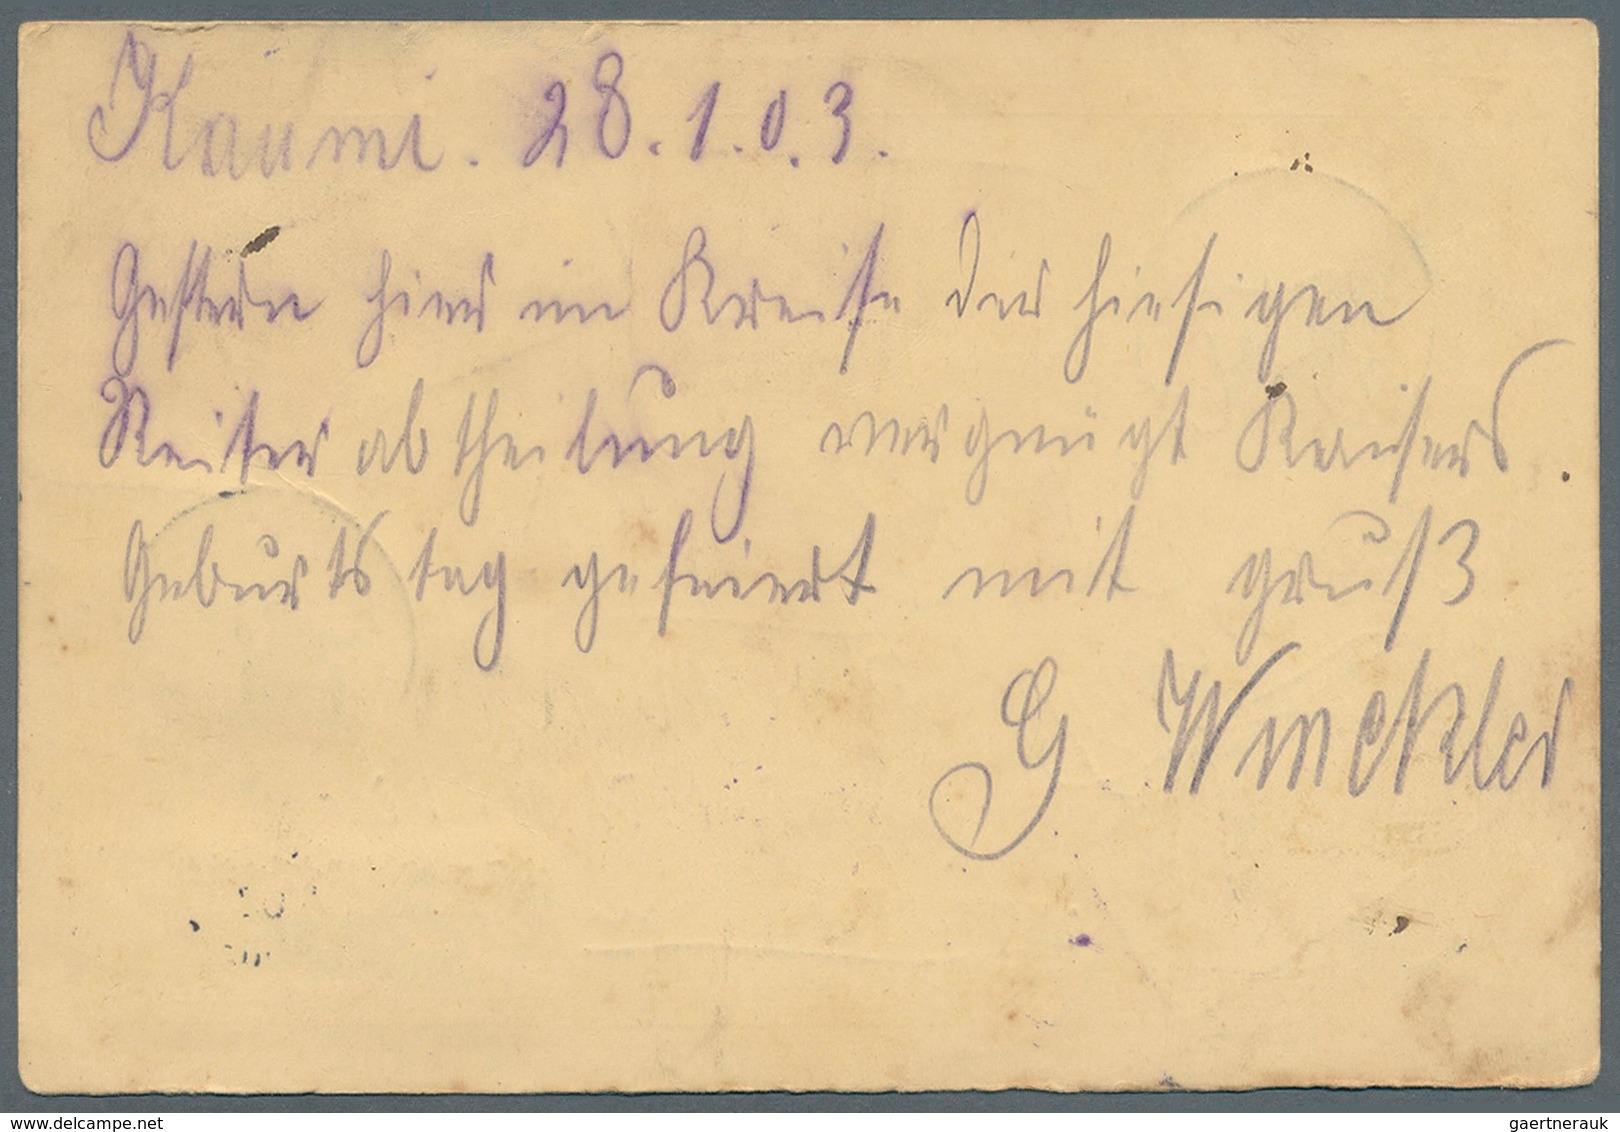 Kaumi. 28.1.03.
Gestern hier im Kreise der hiesigen
Reiter abtheilung vergnügt Kaisers.
Geburtstag gefeiert mit gruß
G Winckler
www.delcampe.net
gaertnerauk